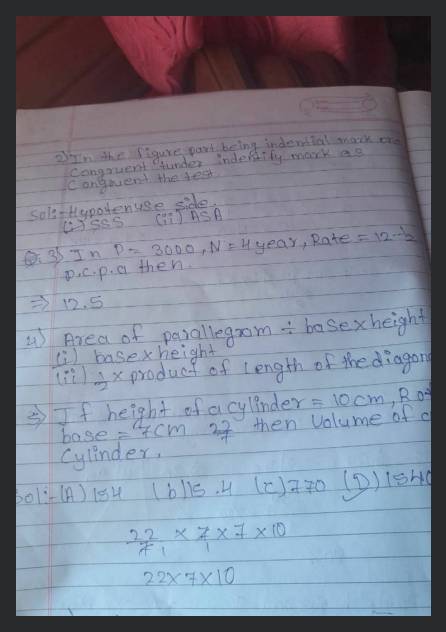 2) In the figure part being indential mark are
Congruent "under indentify mark as
Congruent the test
Sol:- Hypotenuse side.
(i) SSS (ii) ASA
Q.3) In P = 3000, N = 4 year, Rate = 12 1/2
p.c.p.a then.
⇒ 12.5
4) Area of parallegram ÷ base x height
(i) base x height
(ii) 1/2 x product of length of the diagon
5) If height of a cylinder = 10 cm, R of
base = 7cm 22/7 then volume of a
Cylinder.
Sol:- (A) 154 (b) 15.4 (c) 770 (D) 1540
22/7 x 7 x 7 x 10
22 x 7 x 10